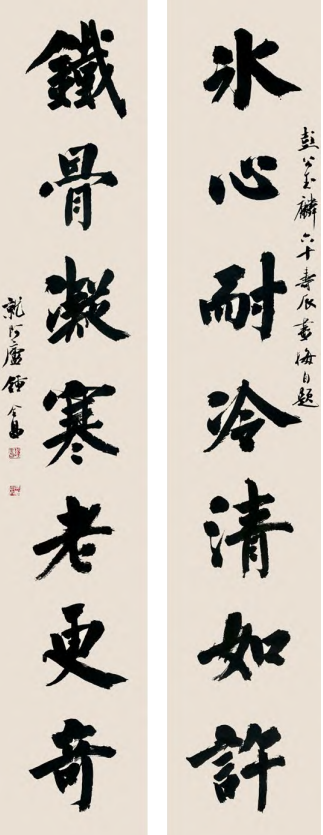 彭公玉麟六十壽辰畫梅自題
冰心耐冷清如許
鐵骨凝寒老更奇